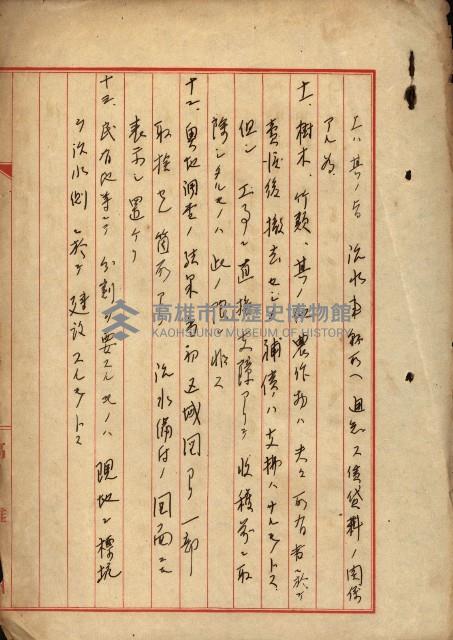 上ハ其ノ旨 流水事務所ヘ 通知ス 借賃料ノ関係
アル為
十一、樹木、竹類、其ノ他 農作物ハ 夫々 所有者ニ於テ
売渡後撤去セシ 補償ハ 支拂ハナルモノトス
但シ 工事ニ直接支障アリテ 收穫前ニ取
除シタルモノハ 此ノ限ニ非ス
十二、実地調査ノ結果 当初 区域図ヨリ 一部
取換ヘ 箇所アリ 流水備付ノ図面ニモ
表示シ置ケリ
十三、民有地ニシテ 分割ヲ要スルモノハ 現地ニ標杭
ヲ流水側ニ於テ 建設スルモノトス
高雄市立歷史博物館
KAOHSIUNG MUSEUM OF HISTORY
高
雄